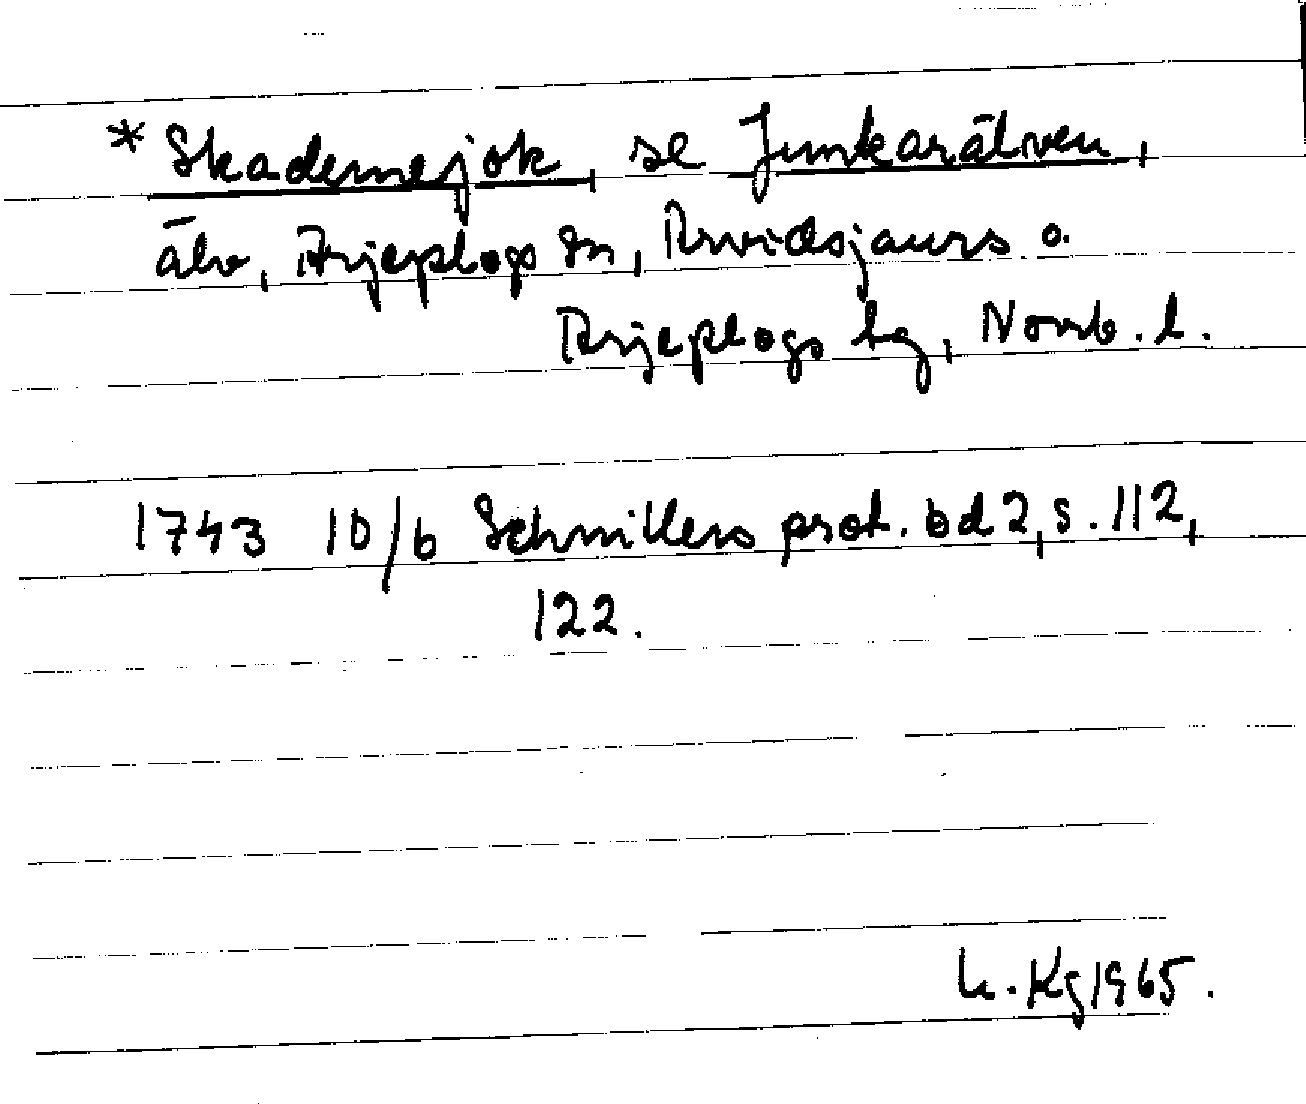 *Skademejok, se Junkarälven,
älv, Arjeplogs sn, Arvidsjaurs o.
Arjeplogs lg, Norrb. l.
1743 10/6 Schnitlers prot. bd 2, s. 112,
122.
L. Kg 1965.